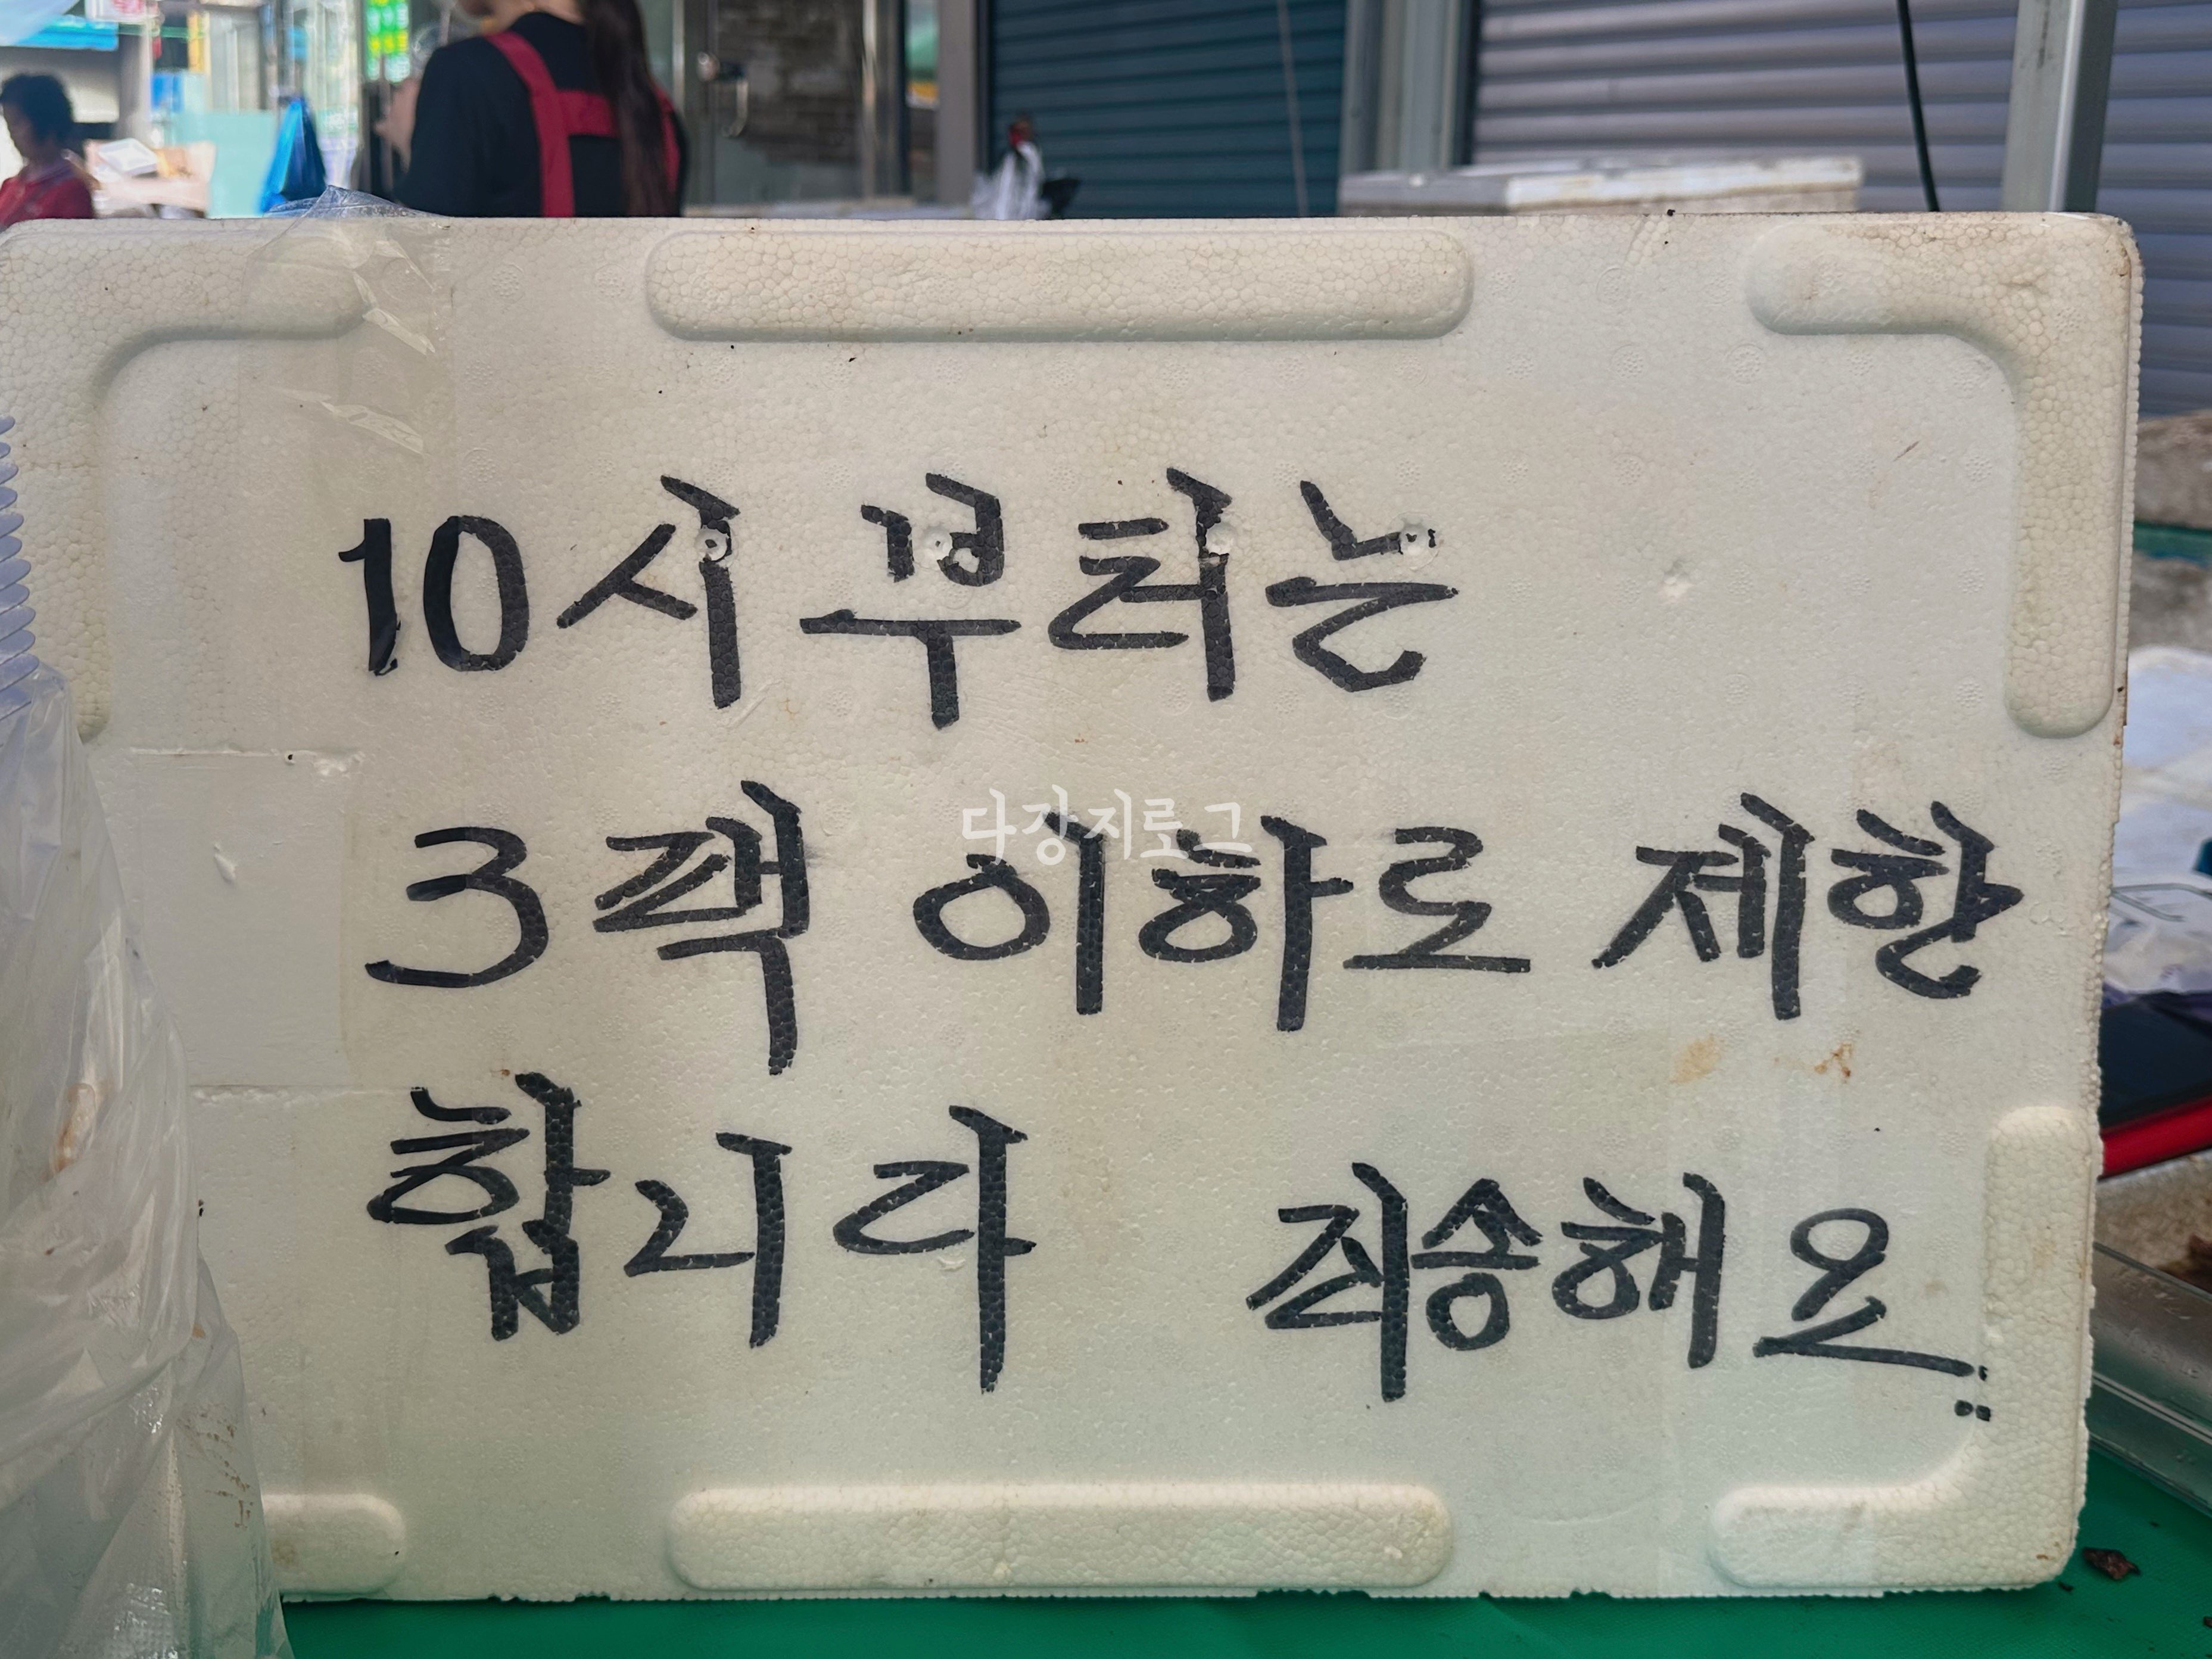 10시 부터는
3팩 이하로 제한
합니다 죄송해요..
다강지로그